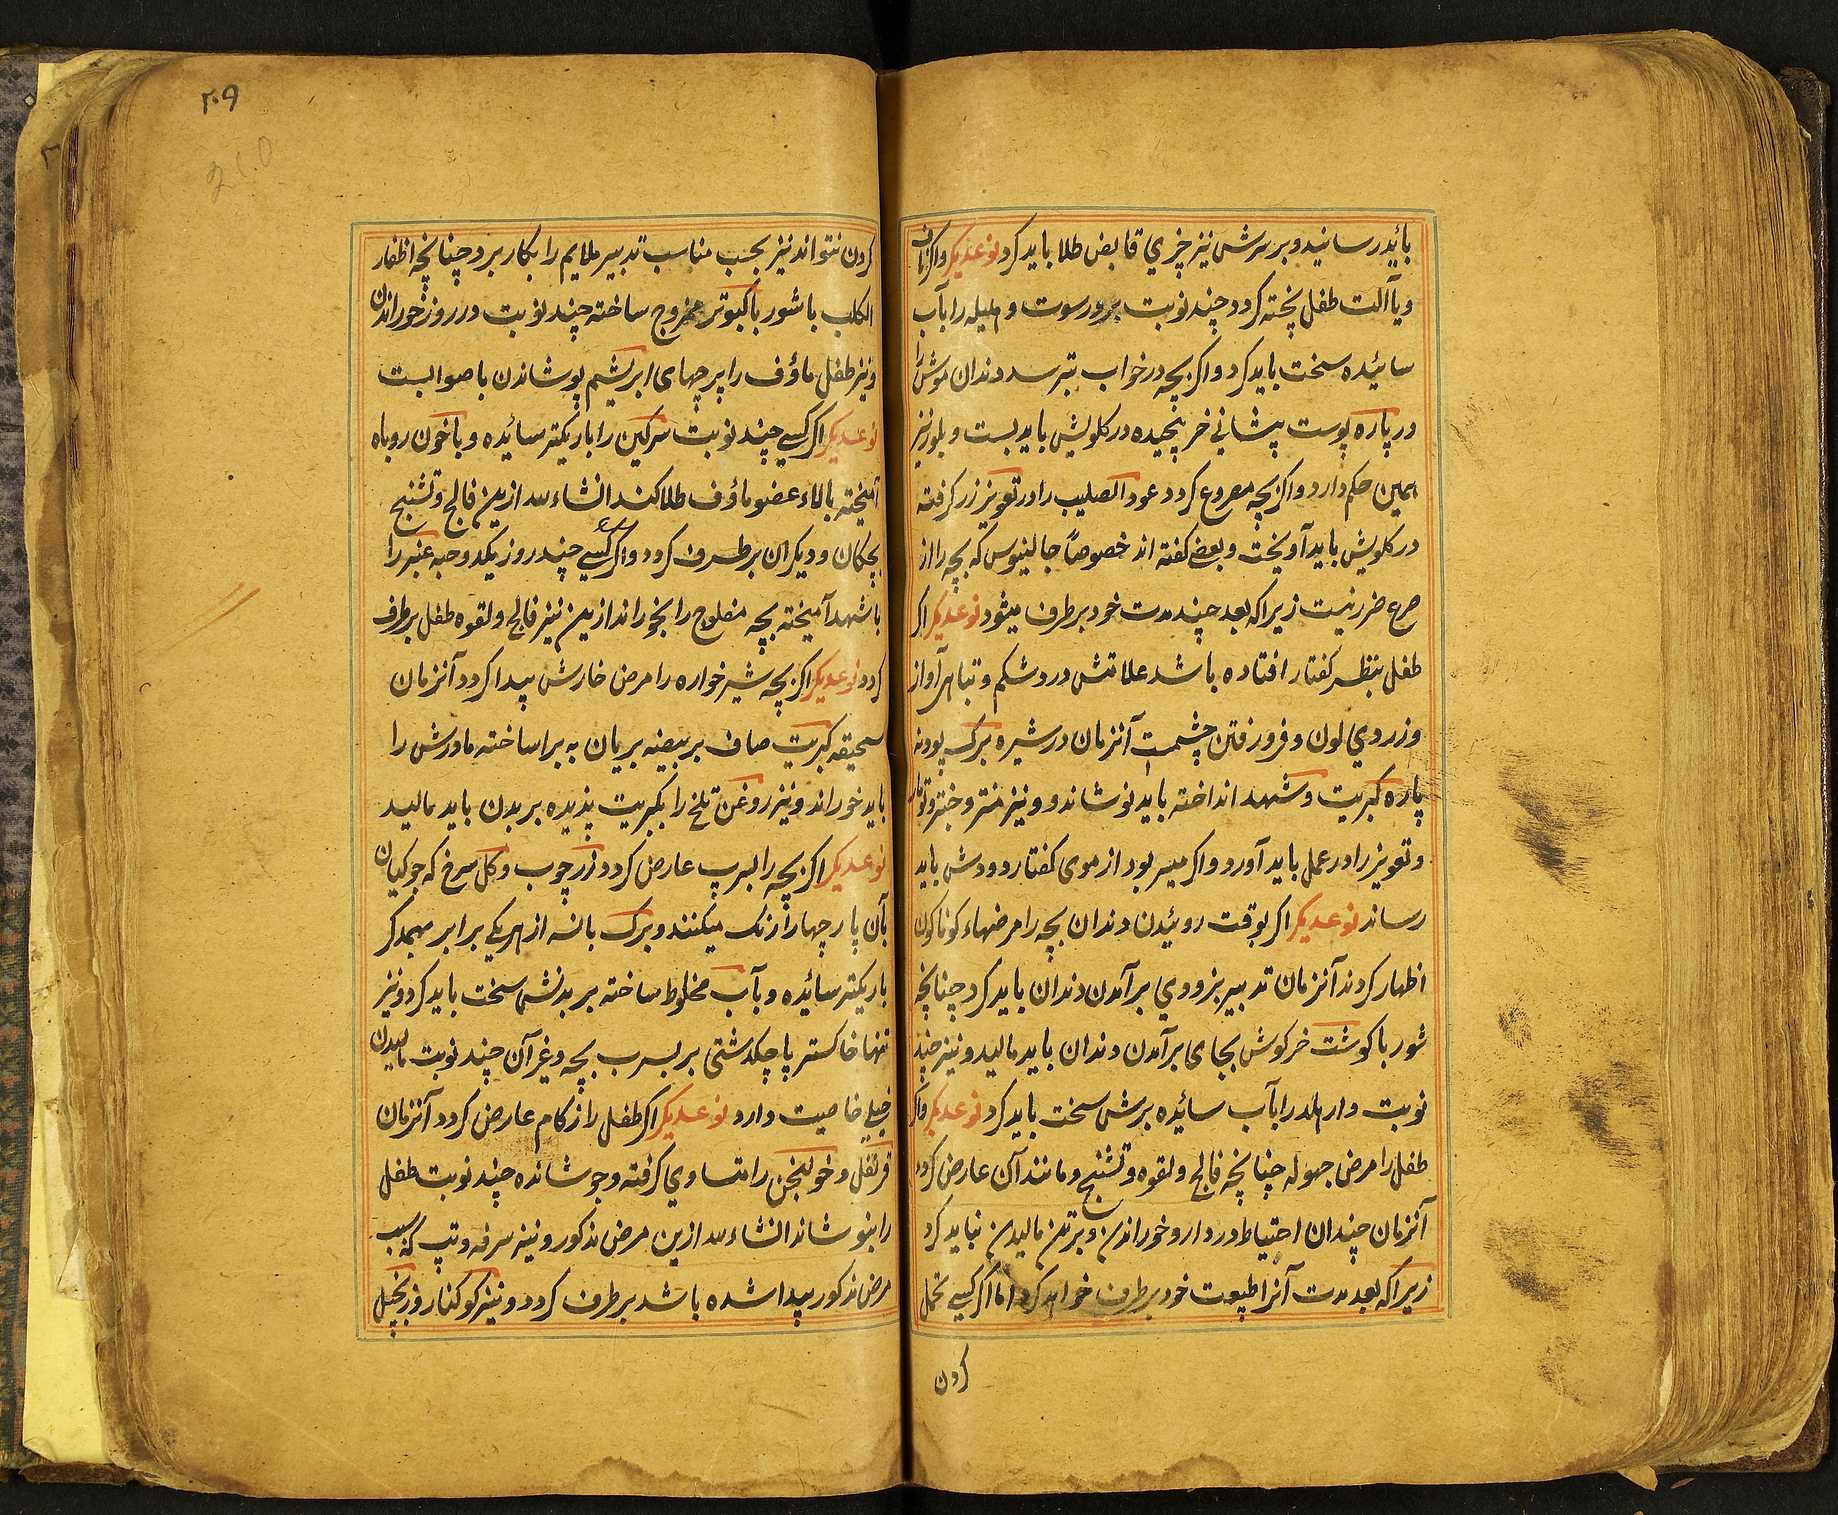 بائید رسانید و بر سرش نیز چزي قابض طلا باید کرد نوعدیکر و اکر ناف
و یا آلت طفل پخته کردد چند نوبت بر و رسوت و هلیله را بآب
سائیده سخت باید کرد و اکر بچه در خواب بترسد دندان موش را
در پاره پوست پیشانی خر پیچیده در کلویش باید بست و بلور نیز
همین حکم دارد و اکر بچه مصروع کردد عود الصلیب را در تعویز زر کرفته
در کلویش باید آویخت و بعض کفته اند خصوصاً جالینوس که بچه را از
صرع ضرر نیست زیرا که بعد چند مدت خود برطرف میشود نوعدیکر اکر
طفل بنظر کفتار افتاده باشد علامتش درد شکم و تباهی آواز
و زردي لون و فرو رفتن چشمست آنزمان در شیره برک پودنه
پاره کبریت و شهد انداخته باید نوشاند و و نیز منتر و جنتر و
و تعویز را در عمل باید آورد و اکر میسر بود از موی کفتار دودش باید
رساند نوعدیکر اکر بوقت روئیدن دندان بچه را مرضهاء کوناکون
اظهار کردند آنزمان تدبیر بزودي برآمدن دندان باید کرد چنانچه
شوربا کوشت خرکوش بجای برآمدن دندان باید مالید و نیز چند
نوبت دار هلد را بآب سائیده برش سخت باید کرد نوعدیکر و اکر
طفل را مرض جهوله چنانچه فالج و لقوه و تشنج و مانند آن عارض کردد
آنزمان چندان احتیاط در دارو خوراندن و بر تن مالیدن نباید کرد
زیرا که بعد مدت آنرا طبیعت خود برطرف خواهد کرد اما اکر کسے تحمل
کردن
۲۰۹
کردن نتواند نیز بحسب مناسب تدبیر ملایم را بکار برد چنانچه اظفار
الکلب با شوربا کبوتر ممزوج ساخته چند نوبت در روز خوراندن
و نیز طفل ماؤف را پرچهای ابریشم پوشاندن با صوابست
نوعدیکر اکر کسے چند نوبت سرکین را باریکتر سائیده و با خون روباه
آمیخته بالاء عضو ماؤف طلا کند انشاءلله ازین فالج و تشنج
بچکان و دیکران برطرف کردد و اکر کسے چند روز یکدو حبه عنبر را
با شهد آمیخته بچه مفلوج را بخوراند ازین نیز فالج و لقوه طفل برطرف
کردد نوعدیکر اکر بچه شیرخواره را مرض خارش پیدا کردد آنزمان
سحیقه کبریت صاف بر بیضه بریان به برا ساخته مادرش را
باید خوراند و نیز روغن تلخ را بکبریت پذیده بر بدن باید مالید
نوعدیکر اکر بچه را لسرب عارض کردد زرچوب و کل سرخ که جوکیان
بآن پارچها را رنک میکنند و برک بانسه از هریکے برابر همدکر
باریکتر سائیده و بآب مخلوط ساخته بر بدنش سخت باید کرد و نیز
تنها خاکستر پاچکدشتی بر لسرب بچه و غیر آن چند نوبت مالیدن
خیلے خاصیت دارد نوعدیکر اکر طفل را زکام عارض کردد آنزمان
قرنفل و خولنجن را متساوي کرفته و جوشانده چند نوبت طفل
را بنوشاند انشاءلله ازین مرض مذکور و نیز سرفه و تپ که بسبب
مرض مذکور پیدا شده باشد برطرف کردد و نیز کوکنار و زنجبیل